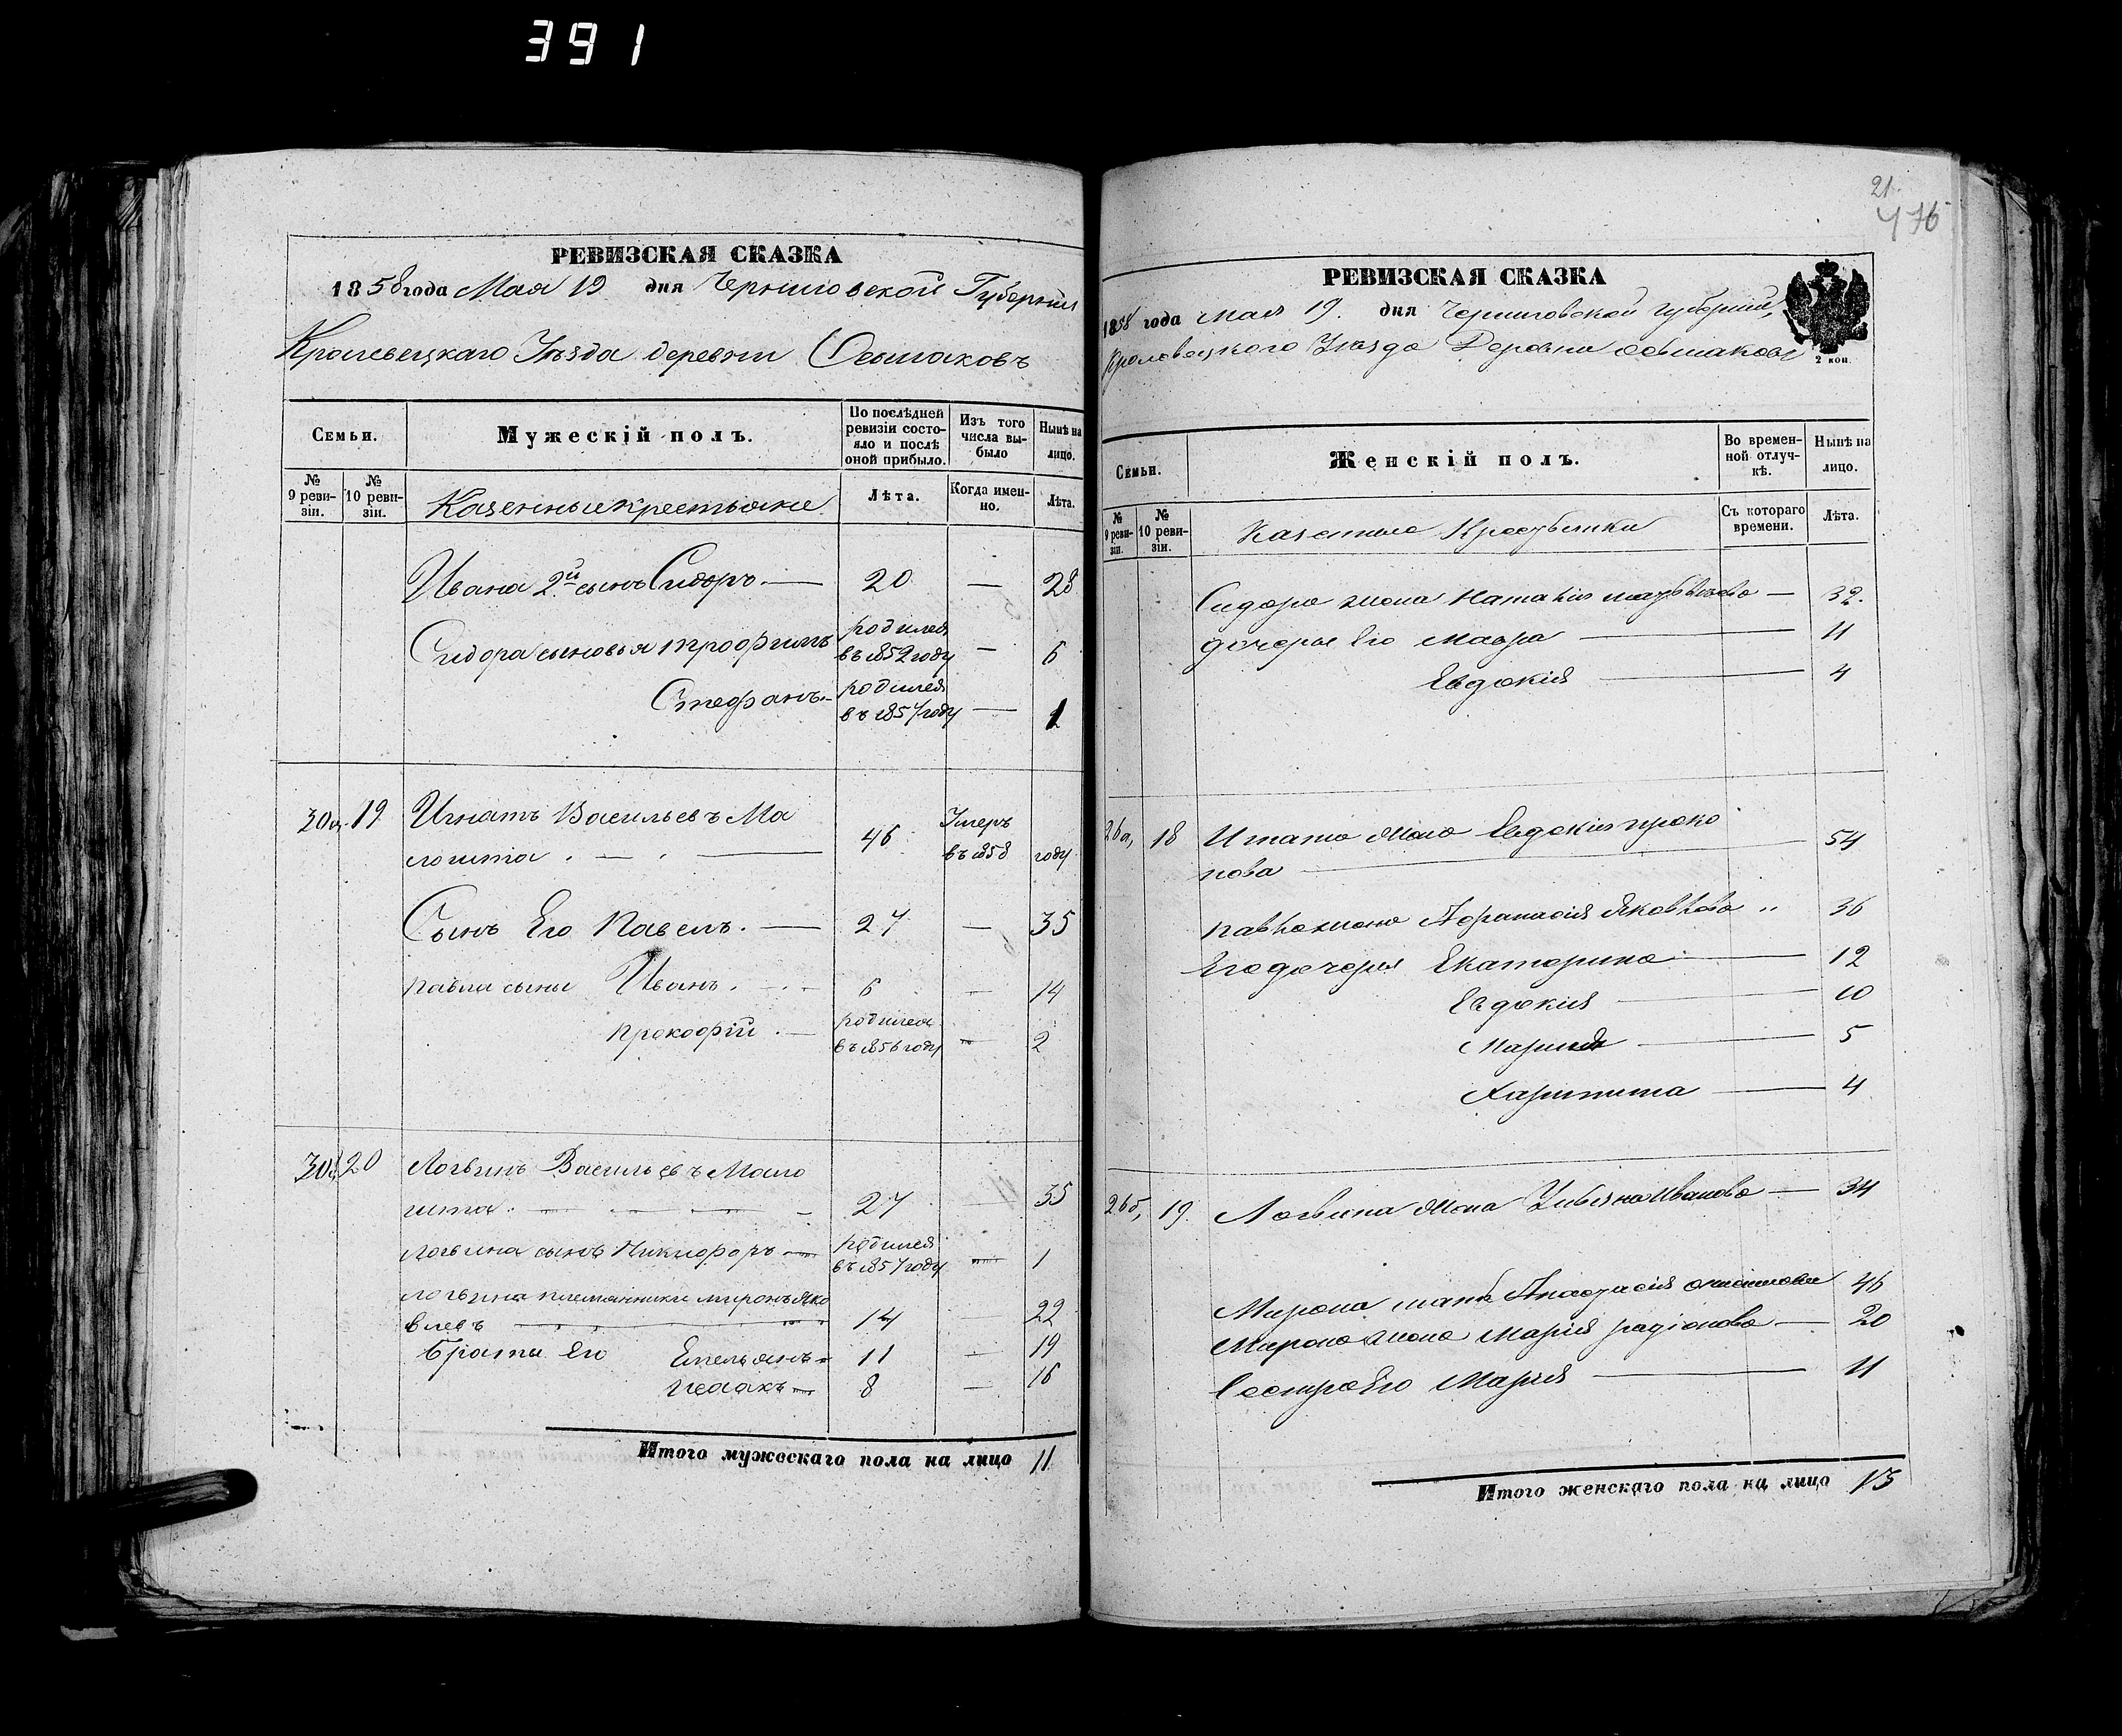 391
РЕВИЗСКАЯ СКАЗКА
1858 года Мая 19 дня Черниговской Губернии
Кролевецкаго Уезда деревни
Семьи.
Мужескій полъ.
По послѣдней ревизіи состояло и послѣ оной прибыло.
Изъ того числа выбыло
Нынѣ на лицо.
№ 9 ревизіи.
№ 10 ревизіи.
Казенные крестьяне
Лѣта.
Когда именно.
Лѣта.
Ивана 2й сынъ Сидоръ. — 20 — 28
Сидора сыновья Трофимъ родился въ 1852 году — 6
Стефанъ. — родился въ 1857 году — 1
30а. 19 Игнатъ Васильевъ Ма
46 Умеръ въ 1858 году
Сынъ Его Павелъ. — 27 — 35
Павла сыны Иванъ. — 6 — 14
Прокофій. — родился въ 1856 году — 2
20 Логвинъ Васильевъ
27 — 35
Логвина сынъ Никифоръ — родился въ 1857 году — 1
Логвина племянники Миронъ Яко
влевъ — 14 — 22
Братья Его Емельянъ 11 — 19
Исаакъ — 8 — 16
Итого мужескаго пола на лицо 11
21.
476
РЕВИЗСКАЯ СКАЗКА
1858 года мая 19. дня Черниговской губерніи,
Кролевецкого Уезда Деревни
2 коп.
Семьи.
Женскій полъ.
Во временной отлучкѣ.
Нынѣ на лицо.
№ 9 ревизіи.
№ 10 ревизіи.
Казенные Крестьянки
Съ котораго времени.
Лѣта.
Сидора жена Наталія — 32.
дочерья Его Мавра — 11
Евдокія — 4
26а, 18 Игната жена Евдокія Проко
пова — 54
Павла жена Афанасія Яковлева 36
Его дочерья Екатерина — 12
Евдокія — 10
Марина — 5
Харитина — 4
26б, 19. Логвина жена Ивановa — 34
Мирона мать Анастасія 46
Мирона жена Марія Радіонова — 20
Сестра Его Марія — 11
Итого женскаго пола на лицо 13